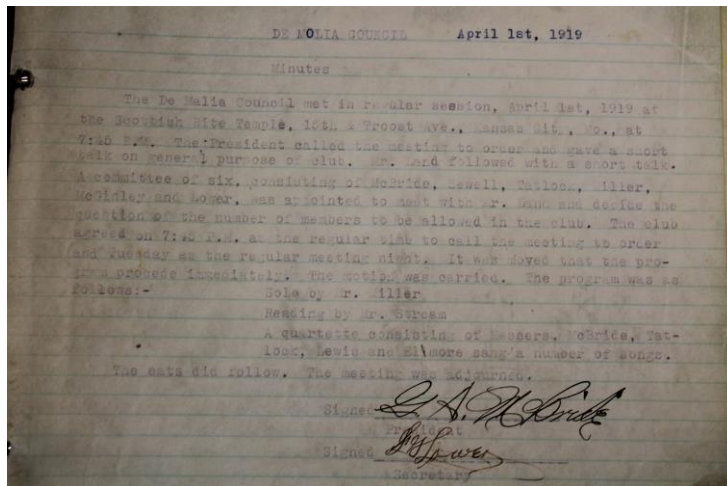 DE MOLIA COUNCIL April 1st, 1919
Minutes
The De Malia Council met in regular session, April 1st, 1919 at
the Scottish Rite Temple, 15th & Troost Ave., Kansas Cit., Mo., at
7:45 P.M. The President called the meeting to order and gave a short
talk on general purpose of club. Mr. Land followed with a short talk.
A committee of six, consisting of McBride, Sewell, Tatlock, Miller,
McGinley and Lower, was appointed to meet with Mr. Land and decide the
question of the number of members to be allowed in the club. The club
agreed on 7:45 P.M. at the regular time to call the meeting to order
and Tuesday as the regular meeting night. It was moved that the pro-
gram procede immediately. The motion was carried. The program was as
follows:- Solo by Mr. Miller
Reading by Mr. Stream
A quartette consisting of Messers. McBride, Tat-
lock, Lewis and Elmore sang a number of songs.
The eats did follow. The meeting was adjourned.
Signed G. A. McBride
President
Signed Lower
Secretary